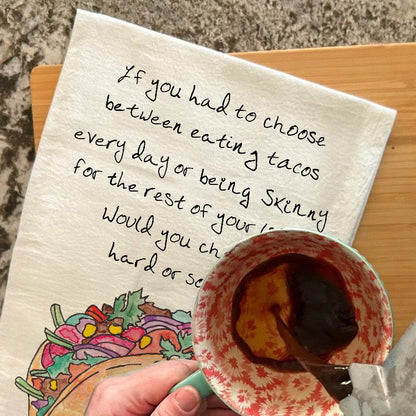 If you had to choose
between eating tacos
every day or being skinny
for the rest of your
Would you
hard or